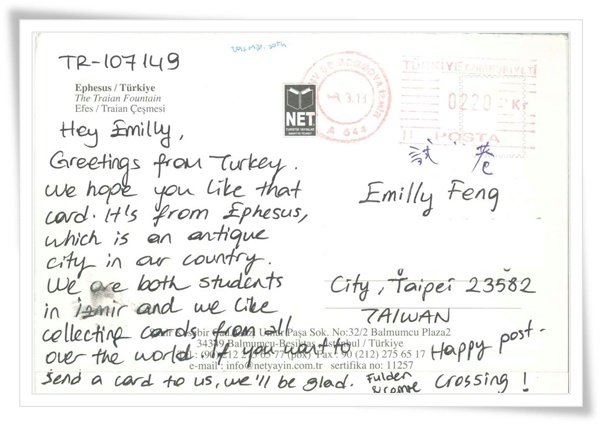 TR-107149
Ephesus / Türkiye
The Traian Fountain
Efes / Traian Çeşmesi
Hey Emilly,
Greetings from Turkey.
We hope you like that
card. It's from Ephesus,
which is an antique
city in our country.
We are both students
in izmir and we like
collecting cards from all
over the world. If you want to
send a card to us, we'll be glad.
Fulden
Happy post-
crossing !
NET
TÜRKİYE CUMHURİYETİ
0220 Kr
POSTA
A 644
Emilly Feng
City, Taipei 23582
TAIWAN
Paşa Sok. No:32/2 Balmumcu Plaza2
34349 Balmumcu-Beşiktaş-İstanbul / Türkiye
90 (212) 275 65 17
e-mail : info@netyayin.com.tr sertifika no: 11257